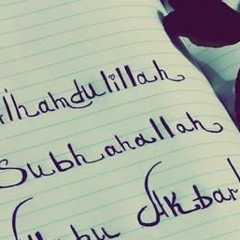 Alhamdulillah
Subhanallah
Allahu Akbar